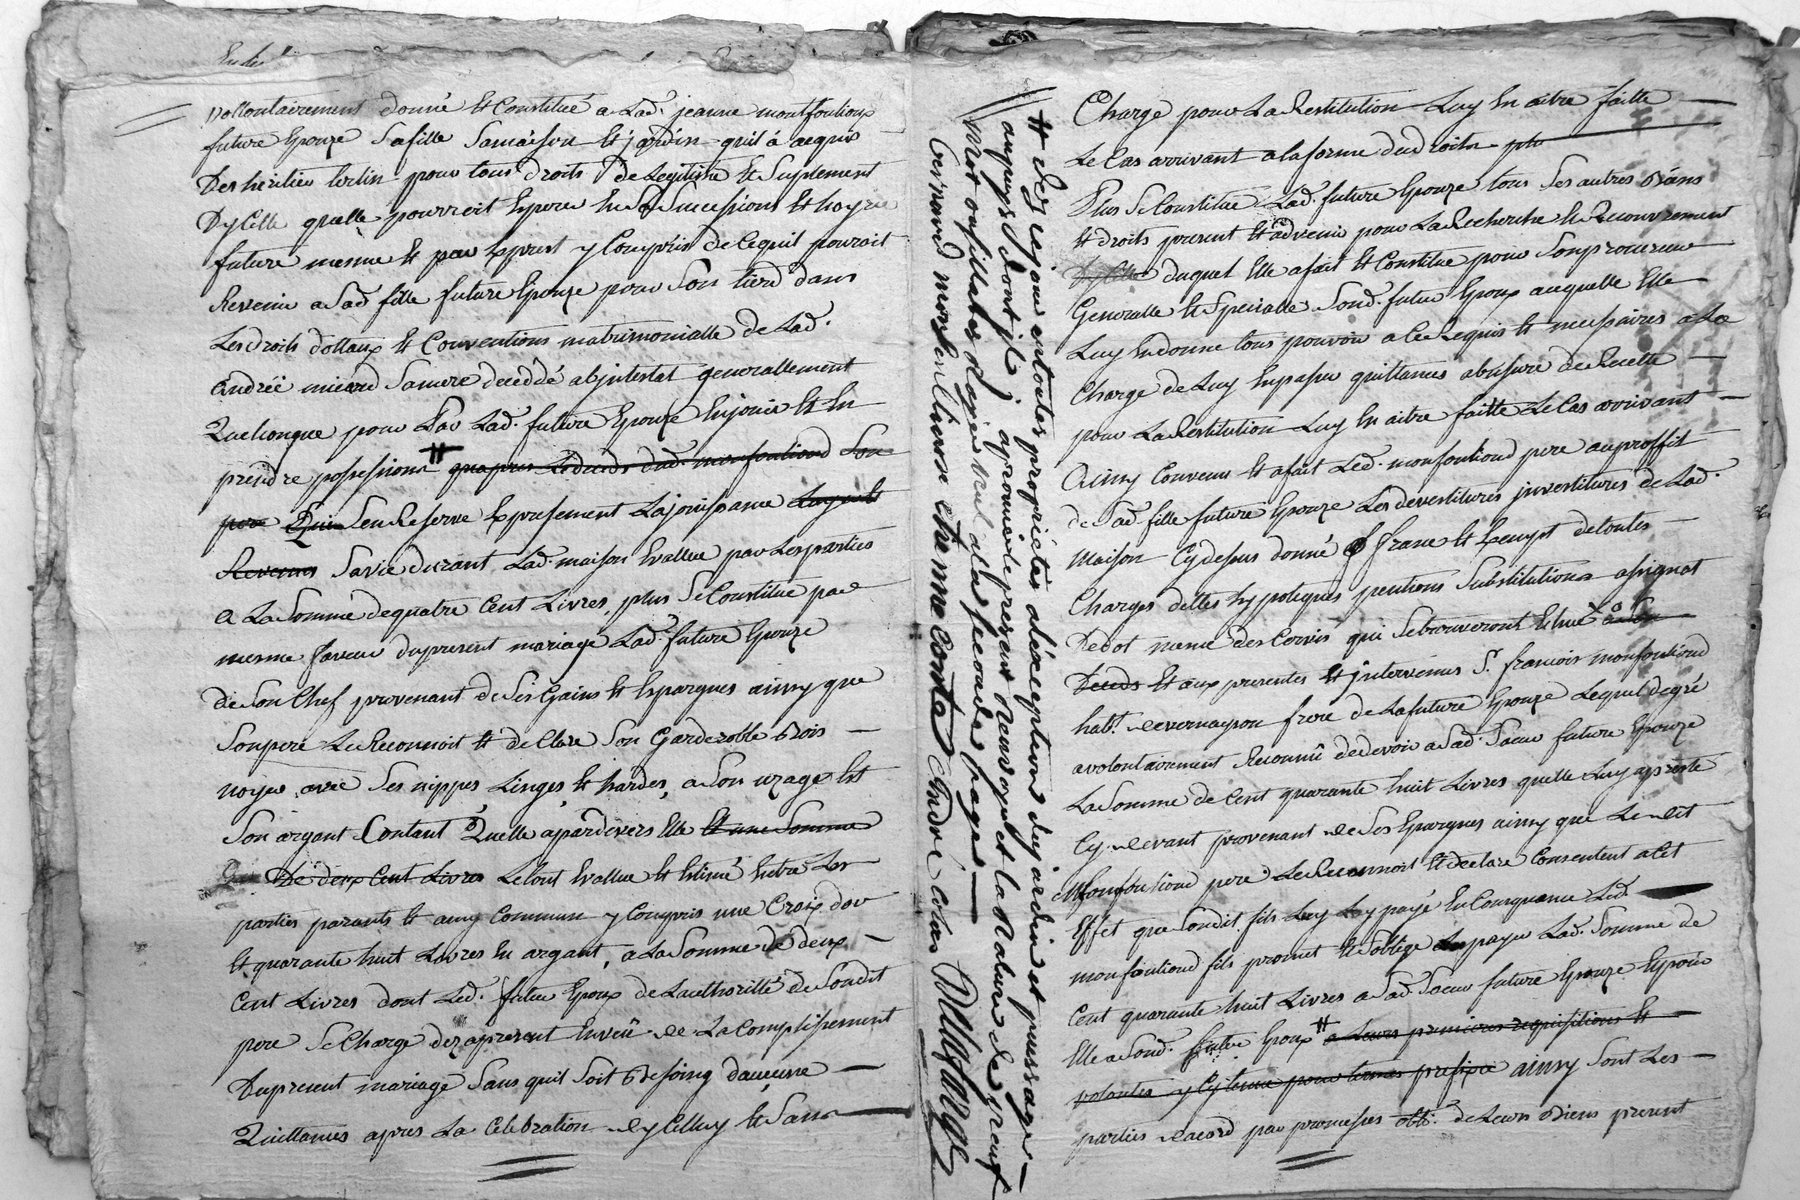 vollontairement donné et Constitué a Lad. jeanne montfoulioux
future Epouze Sa fille Sa maison et jardin quil á acquis
Des héritier pour tous droits De Legitime et Suplement
Dycelle quelle pourroit Esperer En Sa Sucession et hoyrie
future mesme et par Exprest y Compris de Cequil pouroit
Revenir a Sad. fille future Epouze pour Son tierd dans
Les droits dottaux et Conventions matrimonialle de Lad.
Andréé micard Sa mere decedée abjntestat generallement
Quelconque pour Par Lad. future Epouze En jouir et En
prendre possession # quapres Ledeceds dud. monfouliond Son
pere Qui Sen Reserve Expresement La jouissance
Revenus Sa vie durant Lad. maison Evallue par Les parties
a La Somme de quatre Cent Livres, plus Se Constitue par
mesme faveur du present mariage Lad. future Epouze
De Son Chef provenant de Ses Gains et Epargnes ainsy que
Son pere Le Reconnoit et declare Son Garderoble Bois
noyer avec Ses nippes Linges et hardes, a Son uzage Et
Son argant Contant Quelle a pardevers Elle Et une Somme
De deux Cent Livres Le tout Evallue et Estimé Entre Les
parties parants et amy Commun y Compris une Croix dor
Et quarante huit Livres En argant, a La Somme de deux
Cent Livres dont Led. futur Epoux de Lauthoritté de Sondit
pere Se Charge dezapresent En veüe de La Complissement
Du present mariage Sans quil Soit Besoing dauceune
Quittances apres La Celebration dycelluy et Sans
# des cajour en toutes proprietes a lexception du jardin et pussage
auquel dont il aprouve le present Renvoy et la Rature de neuf
Met ou sillabes dapier mil a la seconde page
Corsiond monfouliond etienne conte André colas Delaforge
Charge pour La Restitution Luy En aitre faitte
Le Cas arrivant a la forme du droit
Plus Se Constitue Lad. future Epouze tous Ses autres Biens
Et droits present et advenir pour La Recherche et Recouvrement
Dycelle duquel Elle a fait et Constitue pour Son procureur
Generalle et Specialle Sond. futur Epoux auquelle Elle
Luy En donne tous pouvoir a Ce Requis et necessaires a La
Charge de Luy En passer quittances a mesure de Recette
pour La Restitution Luy En aitre faitte Le Cas arrivant
Ainsy Convenu et a fait Led. monfouliond pere au proffit
de Sad. fille future Epouze Les devestitures jnvestitures de Lad.
Maison Cy dessus donné franc et Exempt de toutes
Charges dettes hypoteques pentions Substitutions assignat
De dot meme des Corvis qui Se trouveront
Deceds Et aux presentes Et jntervenus Sr. francois monfouliond
habt. de vernayson frere de La future Epouze Lequel de gré
a volontairement Reconnü de devoir a Sad. Soeur future Epouze
La Somme de Cent quarante huit Livres quelle Luy a presté
Cy devant provenant de Ses Epargnes ainsy que Le dit
Monfouliond pere Le Reconnoit Et declare Consentent a Cet
Effet que Sondit fils Luy Ey paye En Consequance Led.
monfouliond fils promet et Soblige En payer Lad. Somme de
Cent quarante huit Livres a Sad. Soeur future Epouze Epour
Elle a Sond. futur Epoux # a Leurs premieres requisitions Et
volontés y Cy tenu pour termes prefixe ainsy Sont Les
parties dacord par promesses obb. de Leurs Biens present